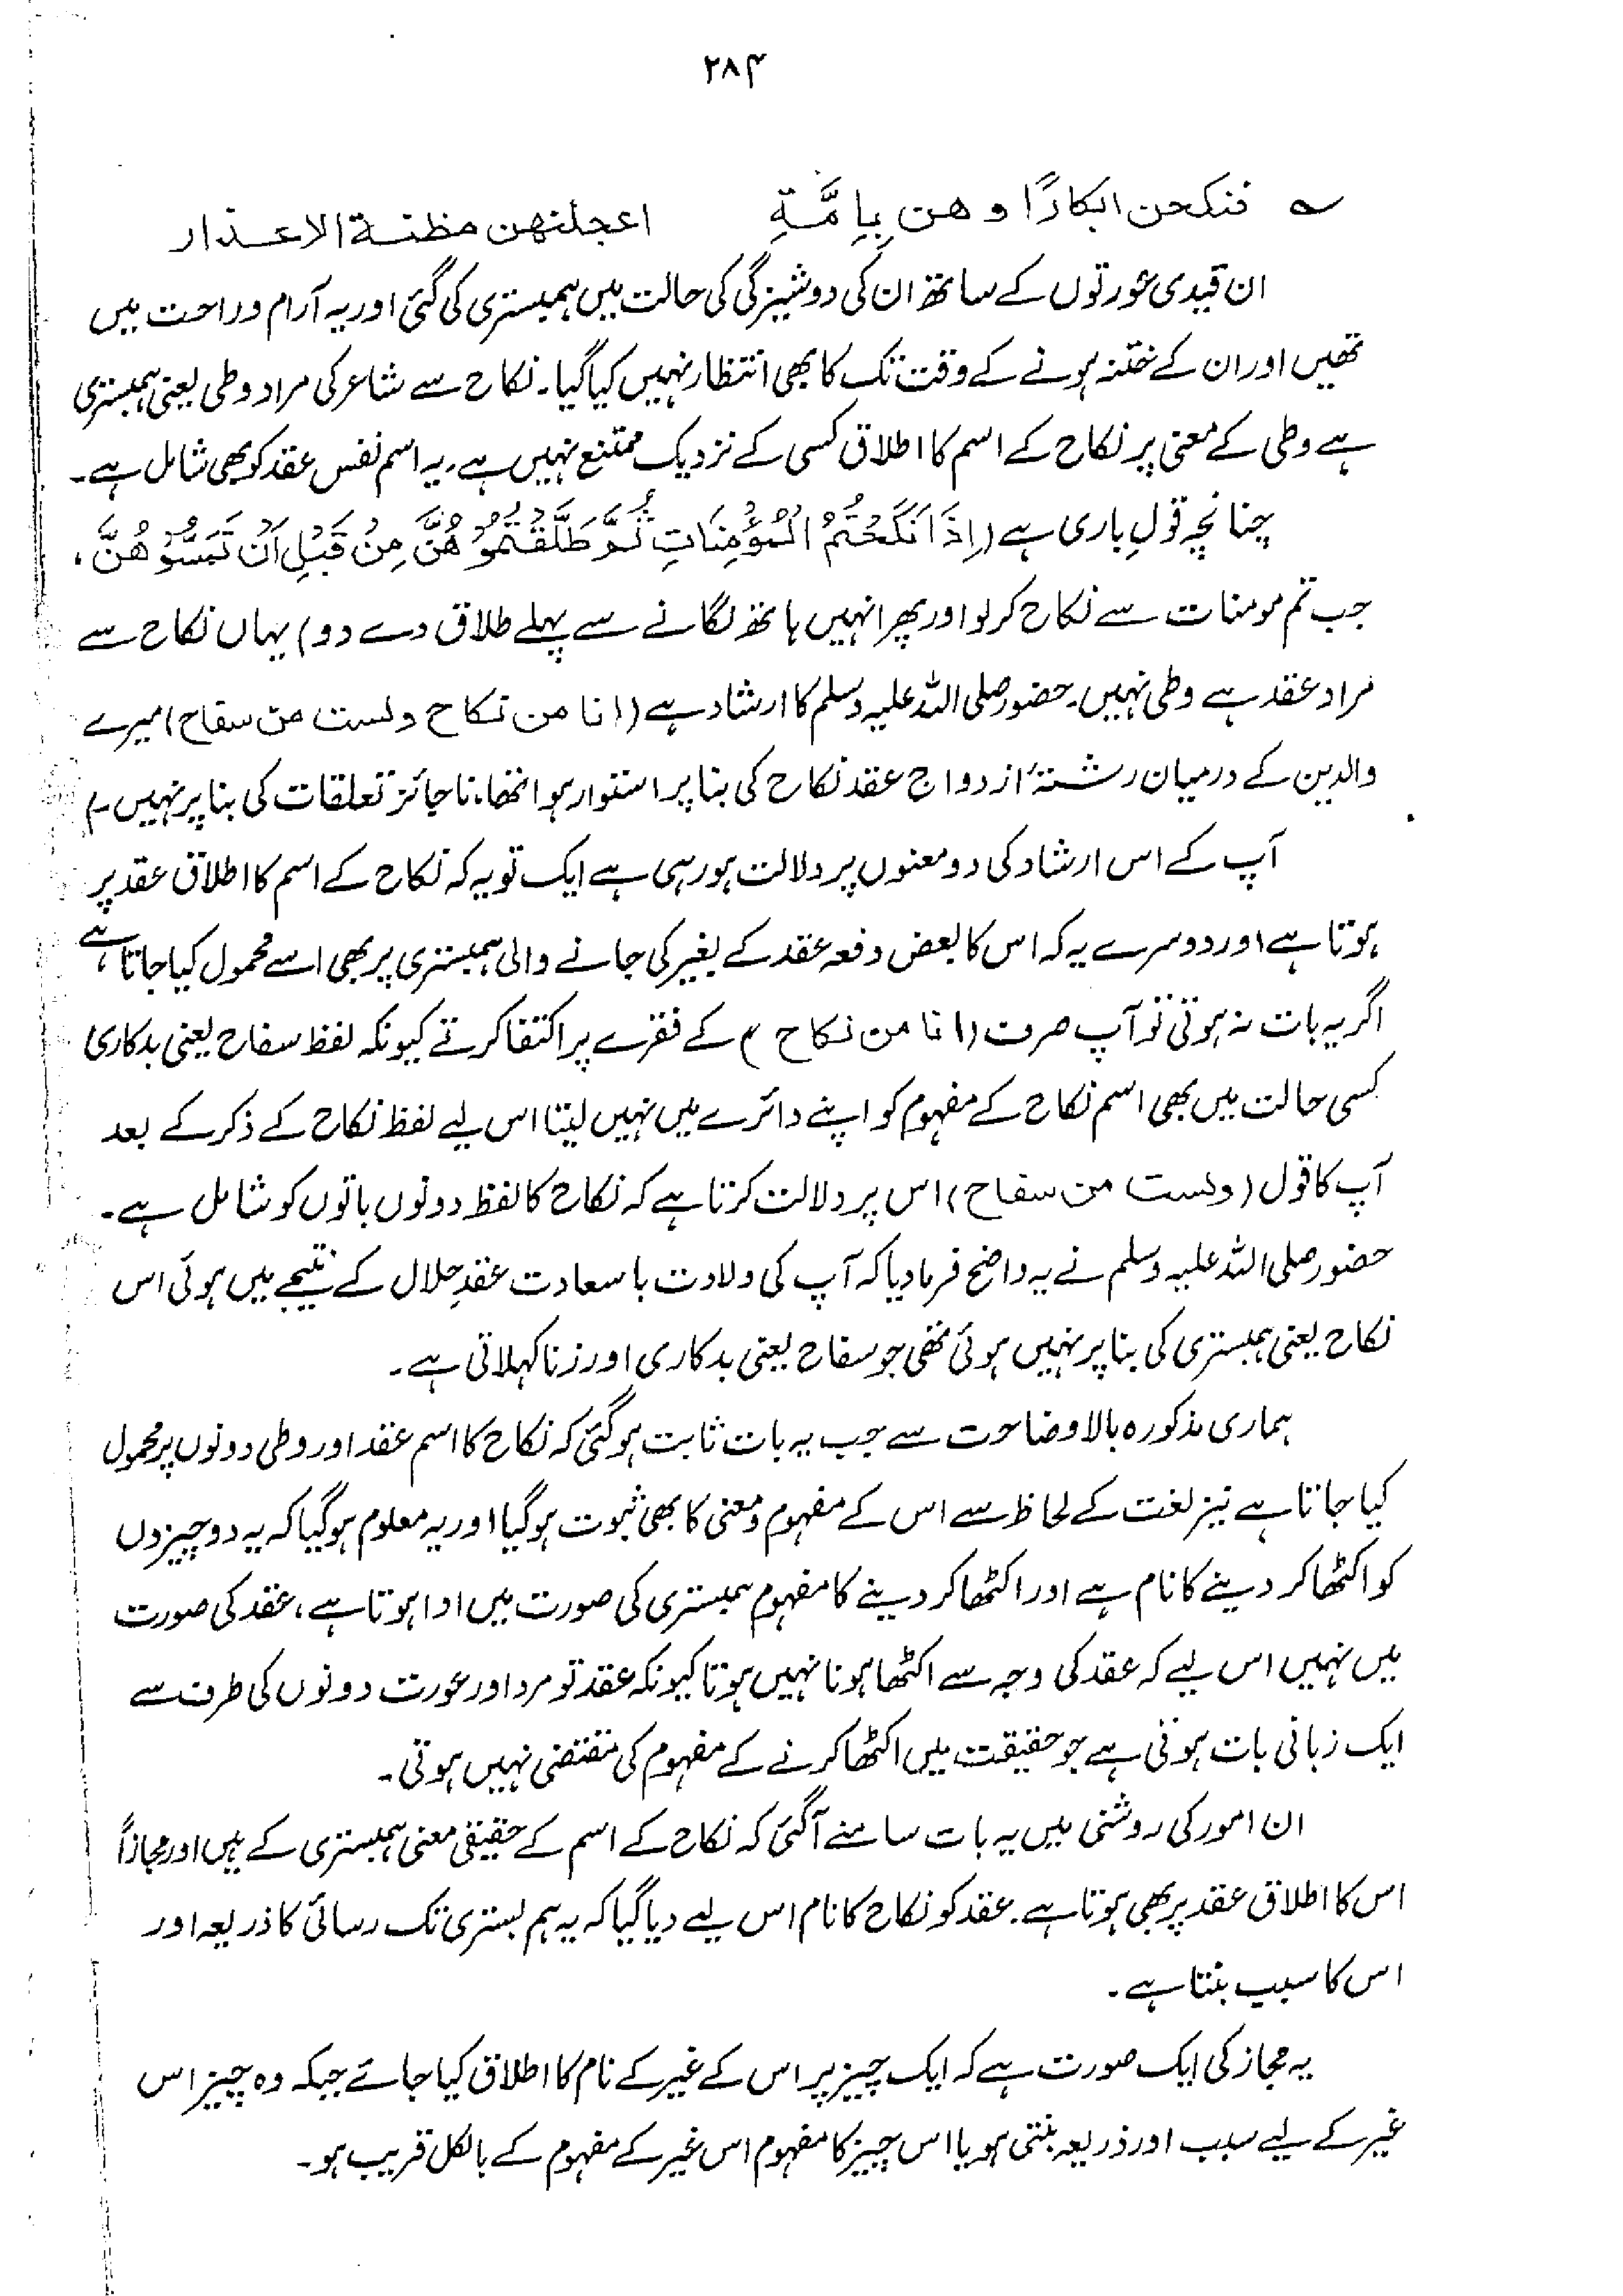 ۲۸۴
؎ فنکحن ابکارًا و هن بِاِمَّةِ اعجلنهن مظنة الاعذار
ان قیدی عورتوں کے ساتھ ان کی دوشیزگی کی حالت میں ہمبستری کی گئی اور یہ آرام و راحت میں
تھیں اور ان کے ختنہ ہونے کے وقت تک کا بھی انتظار نہیں کیا گیا۔ نکاح سے شاعر کی مراد وطی یعنی ہمبستری
ہے وطی کے معنی پر نکاح کے اسم کا اطلاق کسی کے نزدیک ممتنع نہیں ہے۔ یہ اسم نفس عقد کو بھی شامل ہے۔
چنانچہ قولِ باری ہے (اِذَا نَکَحْتُمُ الْمُؤْمِنَاتِ ثُمَّ طَلَّقْتُمُوْهُنَّ مِنْ قَبْلِ اَنْ تَمَسُّوْهُنَّ،
جب تم مومنات سے نکاح کرلو اور پھر انہیں ہاتھ لگانے سے پہلے طلاق دے دو) یہاں نکاح سے
مراد عقد ہے وطی نہیں۔ حضور صلی اللہ علیہ وسلم کا ارشاد ہے (انا من نکاح ولست من سفاح) میرے
والدین کے درمیان رشتۂ ازدواج عقد نکاح کی بنا پر استوار ہوا تھا، ناجائز تعلقات کی بنا پر نہیں۔)
آپ کے اس ارشاد کی دو معنوں پر دلالت ہو رہی ہے ایک تو یہ کہ نکاح کے اسم کا اطلاق عقد پر
ہوتا ہے اور دوسرے یہ کہ اس کا بعض دفعہ عقد کے بغیر کی جانے والی ہمبستری پر بھی اسے محمول کیا جاتا ہے
اگر یہ بات نہ ہوتی تو آپ صرف (انا من نکاح) کے فقرے پر اکتفا کرتے کیونکہ لفظ سفاح یعنی بدکاری
کسی حالت میں بھی اسم نکاح کے مفہوم کو اپنے دائرے میں نہیں لیتا اس لیے لفظ نکاح کے ذکر کے بعد
آپ کا قول (ولست من سفاح) اس پر دلالت کرتا ہے کہ نکاح کا لفظ دونوں باتوں کو شامل ہے۔
حضور صلی اللہ علیہ وسلم نے یہ واضح فرما دیا کہ آپ کی ولادت با سعادت عقدِ حلال کے نتیجے میں ہوئی اس
نکاح یعنی ہمبستری کی بنا پر نہیں ہوئی تھی جو سفاح یعنی بدکاری اور زنا کہلاتی ہے۔
ہماری مذکورہ بالا وضاحت سے جب یہ بات ثابت ہوگئی کہ نکاح کا اسم عقد اور وطی دونوں پر محمول
کیا جاتا ہے نیز لغت کے لحاظ سے اس کے مفہوم و معنی کا بھی ثبوت ہوگیا اور یہ معلوم ہوگیا کہ یہ دو چیزوں
کو اکٹھا کر دینے کا نام ہے اور اکٹھا کر دینے کا مفہوم ہمبستری کی صورت میں ادا ہوتا ہے، عقد کی صورت
میں نہیں اس لیے کہ عقد کی وجہ سے اکٹھا ہونا نہیں ہوتا کیونکہ عقد تو مرد اور عورت دونوں کی طرف سے
ایک زبانی بات ہوتی ہے جو حقیقت میں اکٹھا کرنے کے مفہوم کی مقتضی نہیں ہوتی۔
ان امور کی روشنی میں یہ بات سامنے آگئی کہ نکاح کے اسم کے حقیقی معنی ہمبستری کے ہیں اور مجازاً
اس کا اطلاق عقد پر بھی ہوتا ہے۔ عقد کو نکاح کا نام اس لیے دیا گیا کہ یہ ہم بستری تک رسائی کا ذریعہ اور
اس کا سبب بنتا ہے۔
یہ مجاز کی ایک صورت ہے کہ ایک چیز پر اس کے غیر کے نام کا اطلاق کیا جائے جبکہ وہ چیز اس
غیر کے لیے سبب اور ذریعہ بنتی ہو یا اس چیز کا مفہوم اس غیر کے مفہوم کے بالکل قریب ہو۔